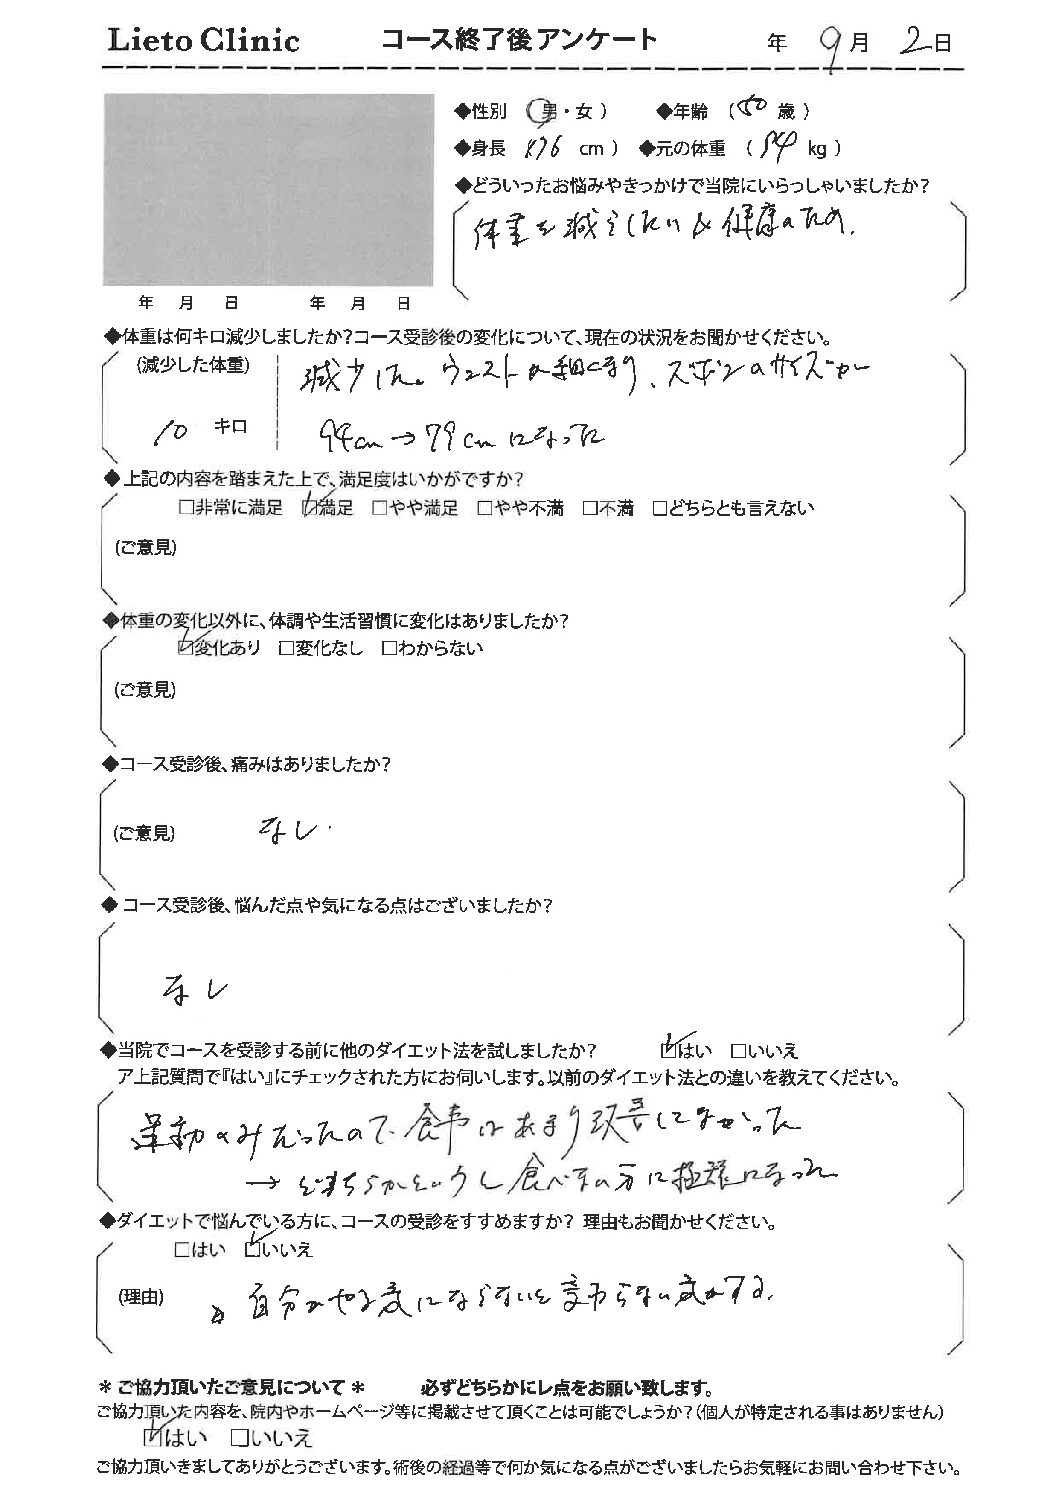 Lieto Clinic コース終了後アンケート 年 9月 2日
◆性別 (男・女) ◆年齢 (50 歳)
◆身長 176 cm) ◆元の体重 (84 kg)
◆どういったお悩みやきっかけで当院にいらっしゃいましたか?
体重を減らしたい & 健康のため.
年 月 日 年 月 日
◆体重は何キロ減少しましたか?コース受診後の変化について、現在の状況をお聞かせください。
(減少した体重) 減少した。ウエストが細くなり、ズボンのサイズが
10 キロ 94cm→79cmになった
◆上記の内容を踏まえた上で、満足度はいかがですか?
□非常に満足 ☑満足 □やや満足 □やや不満 □不満 □どちらとも言えない
(ご意見)
◆体重の変化以外に、体調や生活習慣に変化はありましたか?
☑変化あり □変化なし □わからない
(ご意見)
◆コース受診後、痛みはありましたか?
(ご意見) なし.
◆コース受診後、悩んだ点や気になる点はございましたか?
なし
◆当院でコースを受診する前に他のダイエット法を試しましたか? ☑はい □いいえ
ア上記質問で『はい』にチェックされた方にお伺いします。以前のダイエット法との違いを教えてください。
運動のみだったので食事はあまり改善してなかった
→ どちらかというと食べない方に極端になった
◆ダイエットで悩んでいる方に、コースの受診をすすめますか? 理由もお聞かせください。
□はい ☑いいえ
(理由) 自分がやる気にならないと変わらない気がする.
*ご協力頂いたご意見について* 必ずどちらかにレ点をお願い致します。
ご協力頂いた内容を、院内やホームページ等に掲載させて頂くことは可能でしょうか?(個人が特定される事はありません)
☑はい □いいえ
ご協力頂いきましてありがとうございます。術後の経過等で何か気になる点がございましたらお気軽にお問い合わせ下さい。